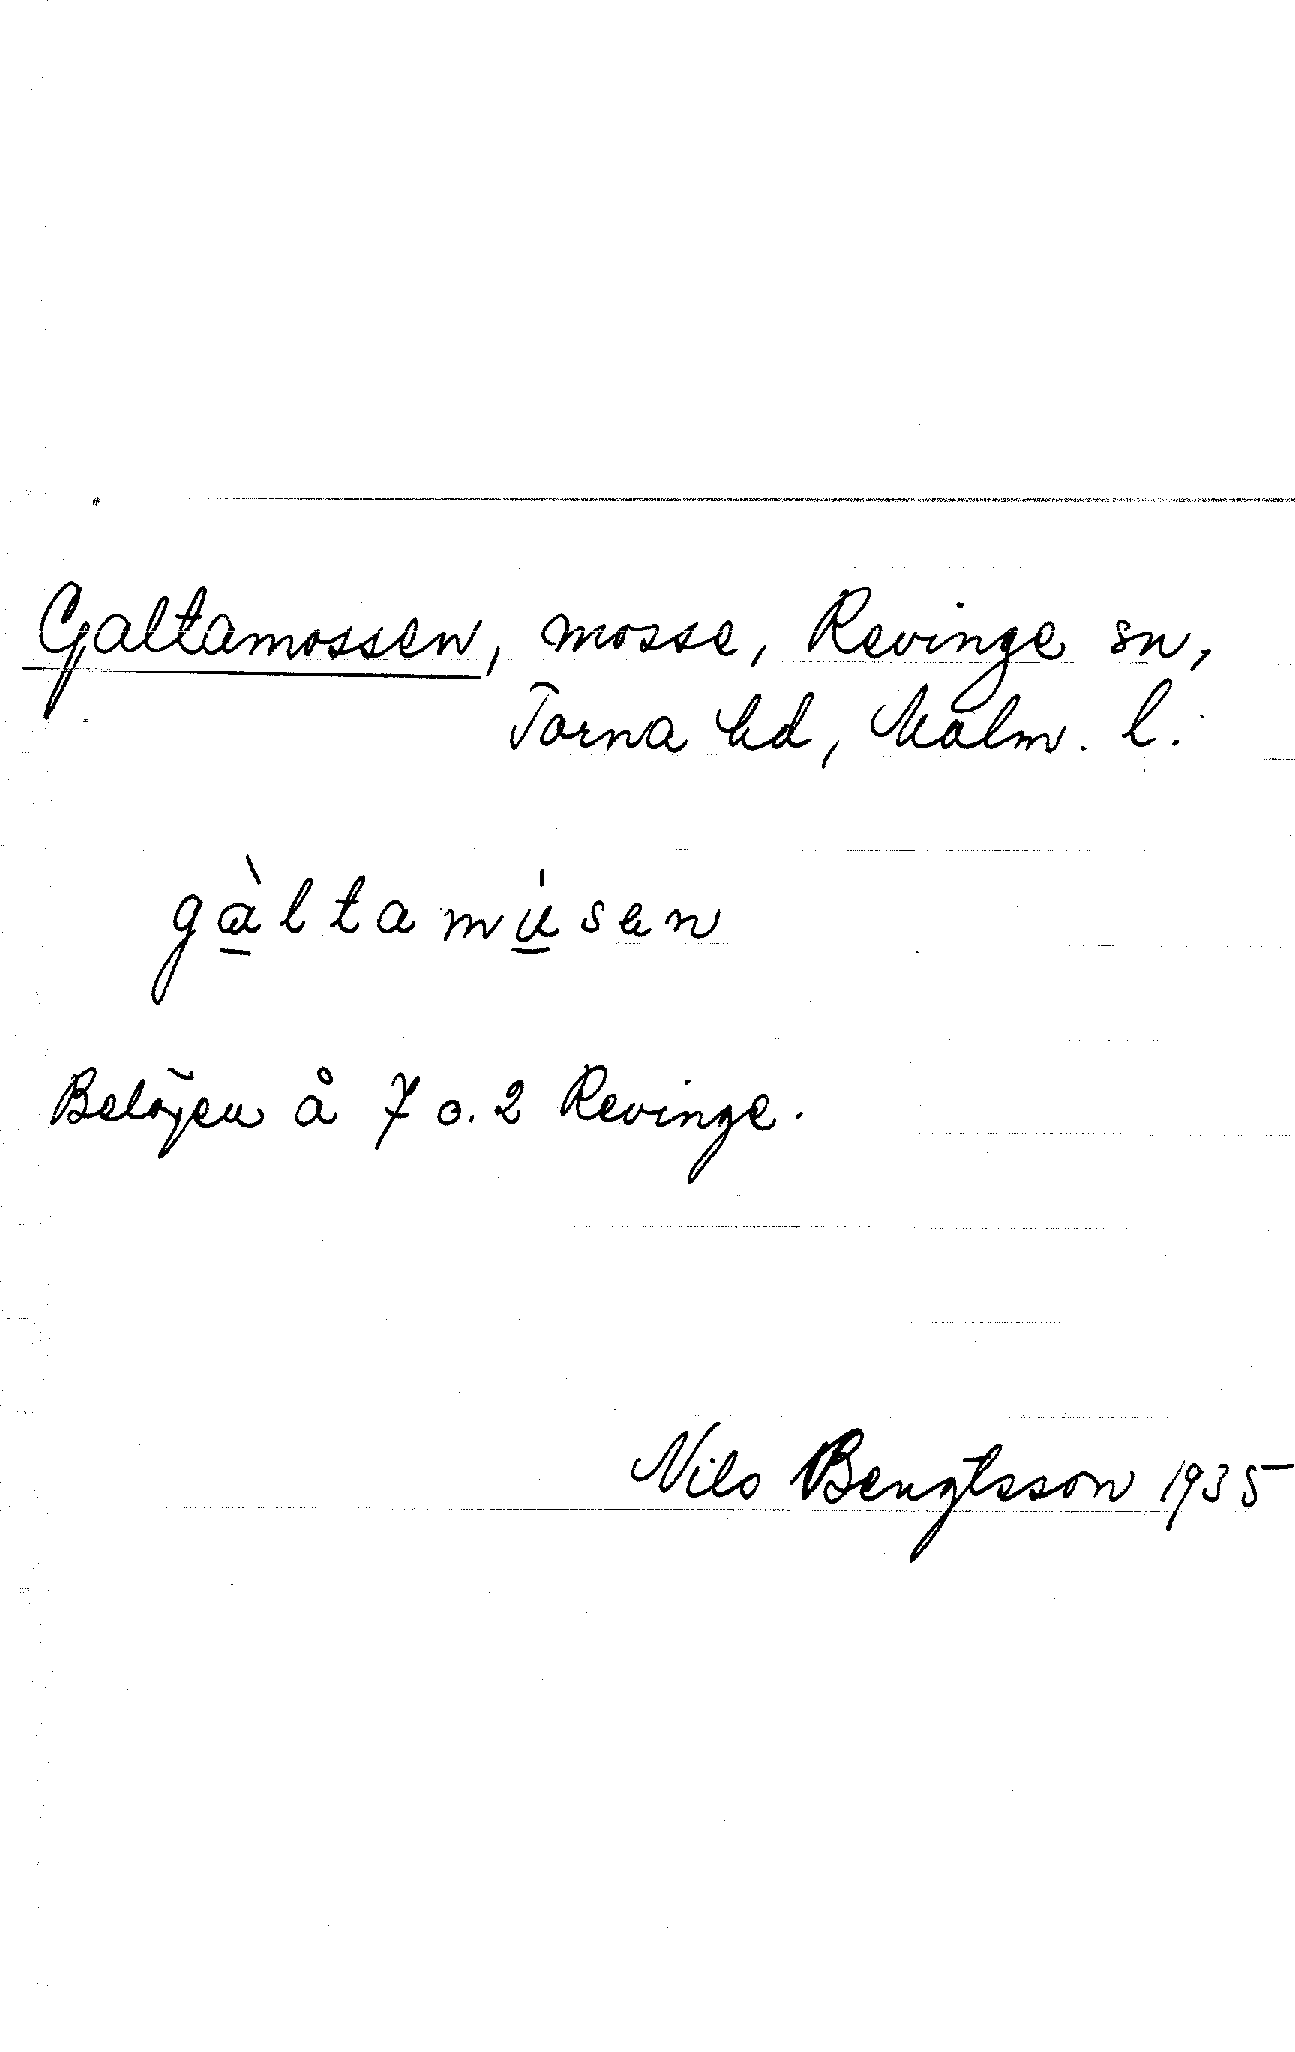 Galtamossen, mosse, Revinge sn,
Torna hd, Malm. l.
gàltamúsen
Belägen å 7 o. 2 Revinge.
Nils Bengtsson 1935